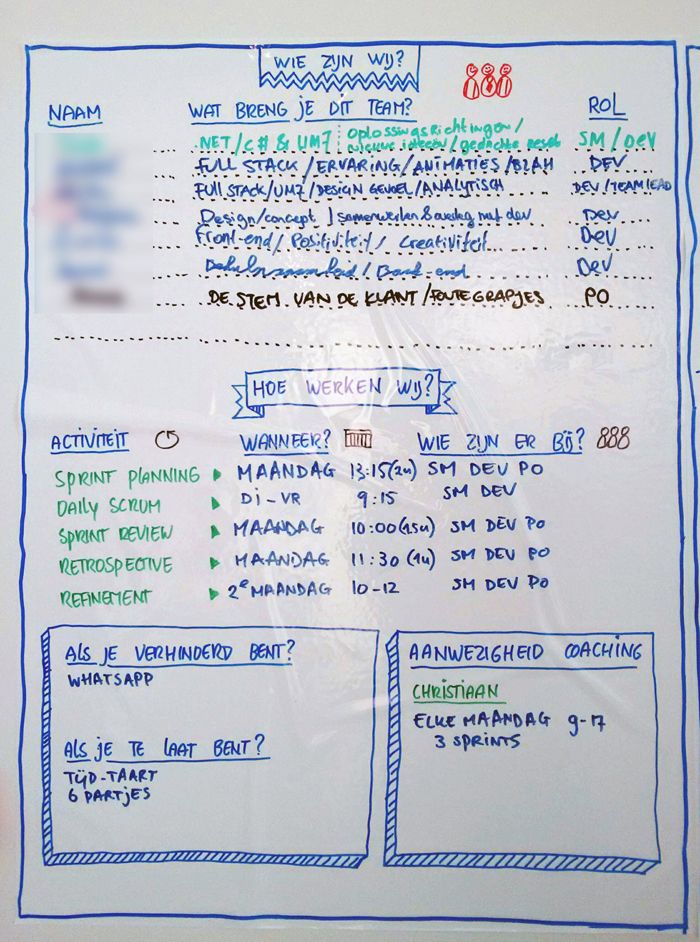 WIE ZIJN WIJ?
NAAM WAT BRENG JE DIT TEAM? ROL
.NET/C# & UM7 oplossingsRichtingen/ nieuwe ideeën/gedachte reset SM/DEV
FULL STACK/ERVARING/ANIMATIES/BLAH DEV
FULL STACK/UM7/DESIGN GEVOEL/ANALYTISCH DEV/TEAMLEAD
Design/concept samenwerken & overleg met dev Dev
Front-end/Positiviteit/Creativiteit DEV
Behulpzaamheid/Back-end DEV
DE STEM VAN DE KLANT/FOUTE GRAPJES PO
HOE WERKEN WIJ?
ACTIVITEIT WANNEER? WIE ZIJN ER BIJ?
SPRINT PLANNING MAANDAG 13:15(2u) SM DEV PO
DAILY SCRUM Di-VR 9:15 SM DEV
SPRINT REVIEW MAANDAG 10:00(1.5u) SM DEV PO
RETROSPECTIVE MAANDAG 11:30 (1u) SM DEV PO
REFINEMENT 2e MAANDAG 10-12 SM DEV PO
ALS JE VERHINDERD BENT?
WHATSAPP
ALS JE TE LAAT BENT?
TIJD-TAART
6 PARTJES
AANWEZIGHEID COACHING
CHRISTIAAN
ELKE MAANDAG 9-17
3 SPRINTS